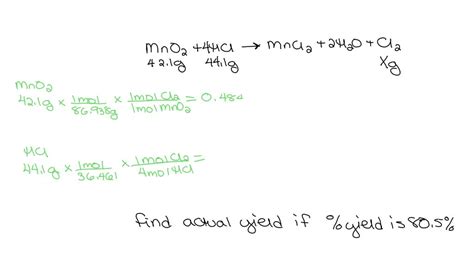 MnO₂ + 4HCl → MnCl₂ + 2H₂O + Cl₂
42.1g 44.1g Xg
MnO₂
42.1g × 1mol/86.938g × 1molCl₂/1molMnO₂ = 0.484
HCl
44.1g × 1mol/36.461 × 1molCl₂/4molHCl =
find actual yield if % yield is 80.5%